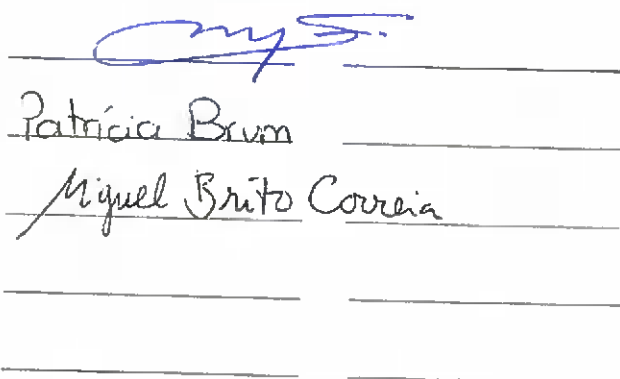 Patrícia Brum
Miguel Brito Correia